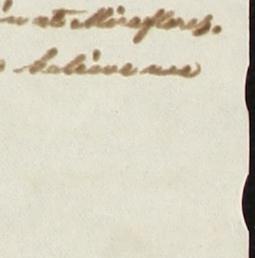 in at Miraflores.
believe me